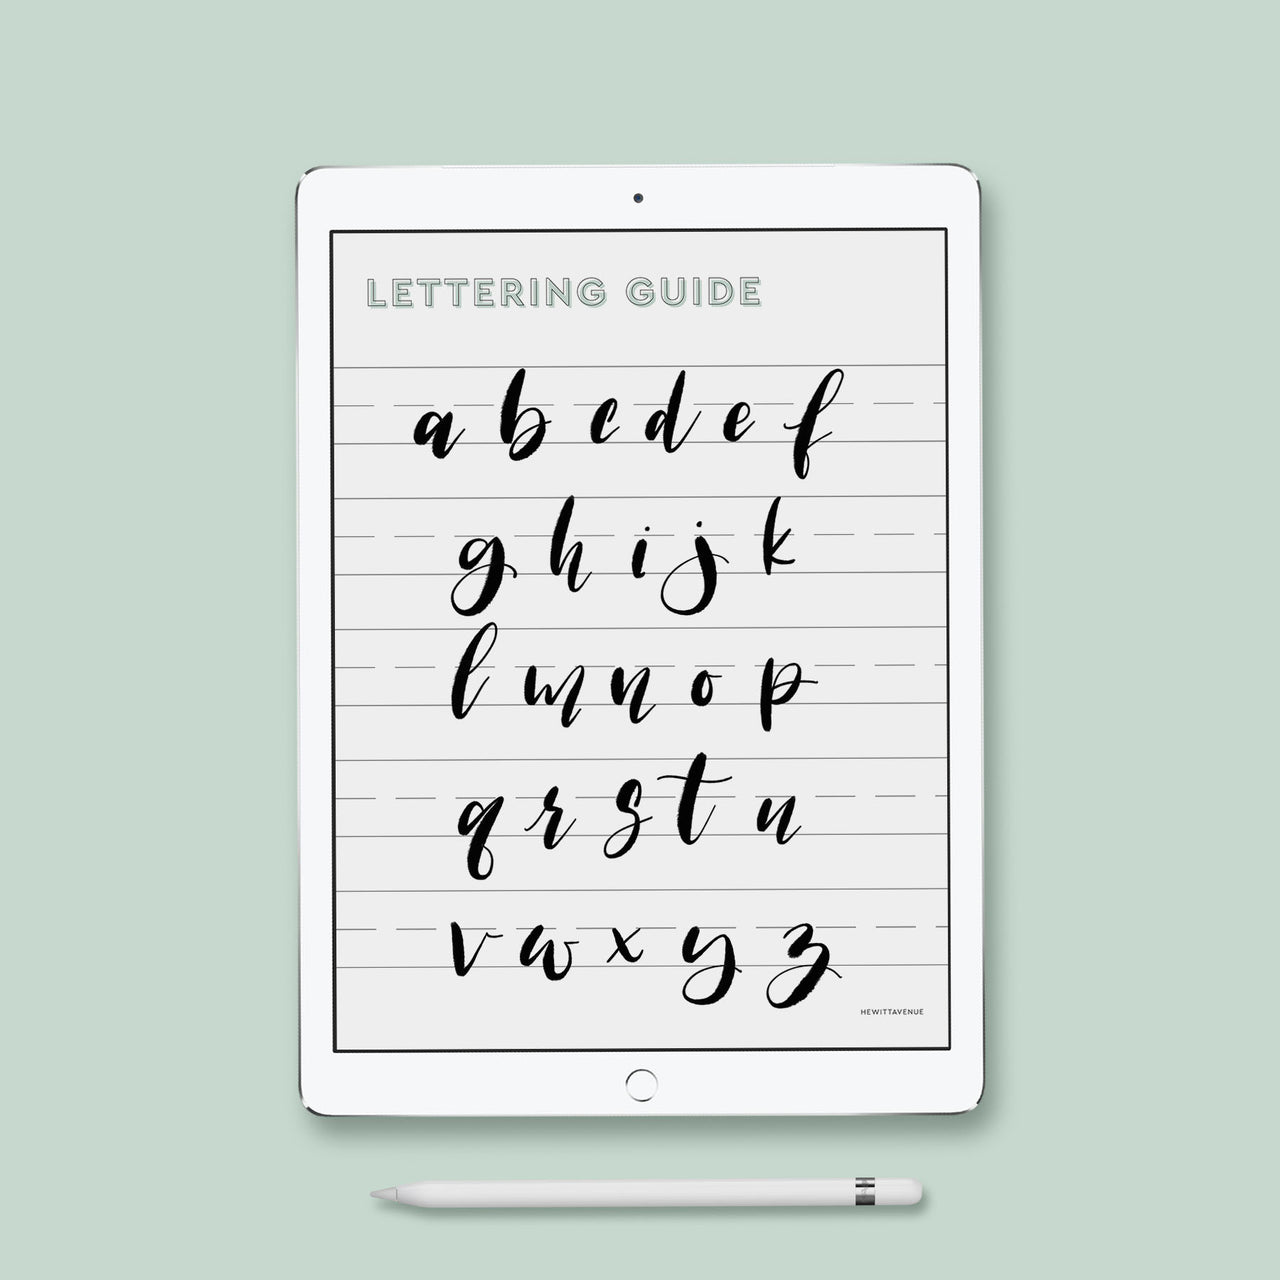 LETTERING GUIDE
a b c d e f
g h i j k
l m n o p
q r s t u
v w x y z
HEWITTAVENUE